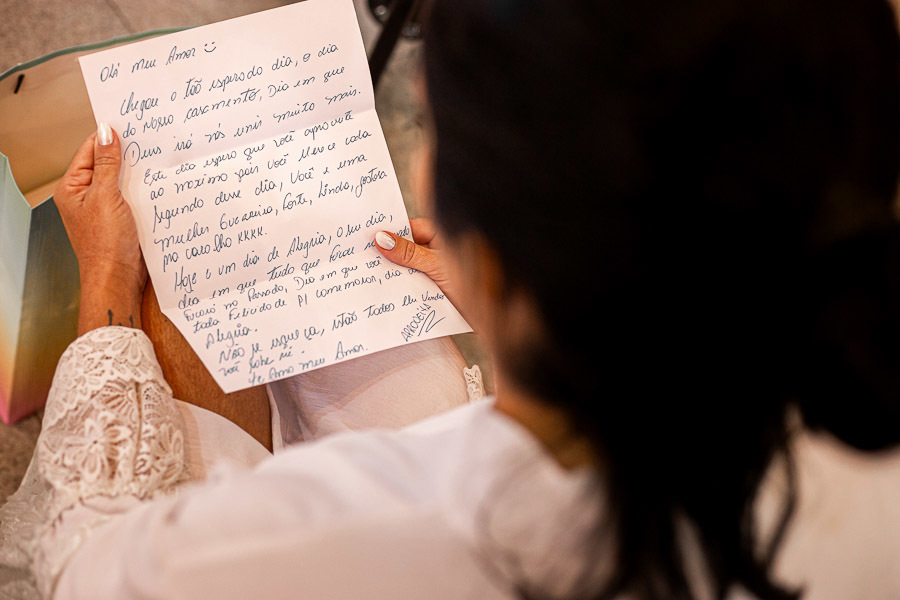 Olá meu Amor
Chegou o tão esperado dia, o dia
do Nosso casamento, Dia em que
Deus irá nós unir muito mais.
Este dia espero que você aproveite
ao maximo pois você merece cada
segundo desse dia, você e uma
mulher Guerreira, forte, linda, gostosa
pra caralho KKKK.
Hoje e um dia de Alegria, o seu dia,
dia em que tudo que foras
ficará no Passado, Dia em que você
toda Felicidade P/ comemorar, dia de
Alegria.
Não se esqueça, estão todos lhe vendo
você sabe né
te Amo meu Amor.